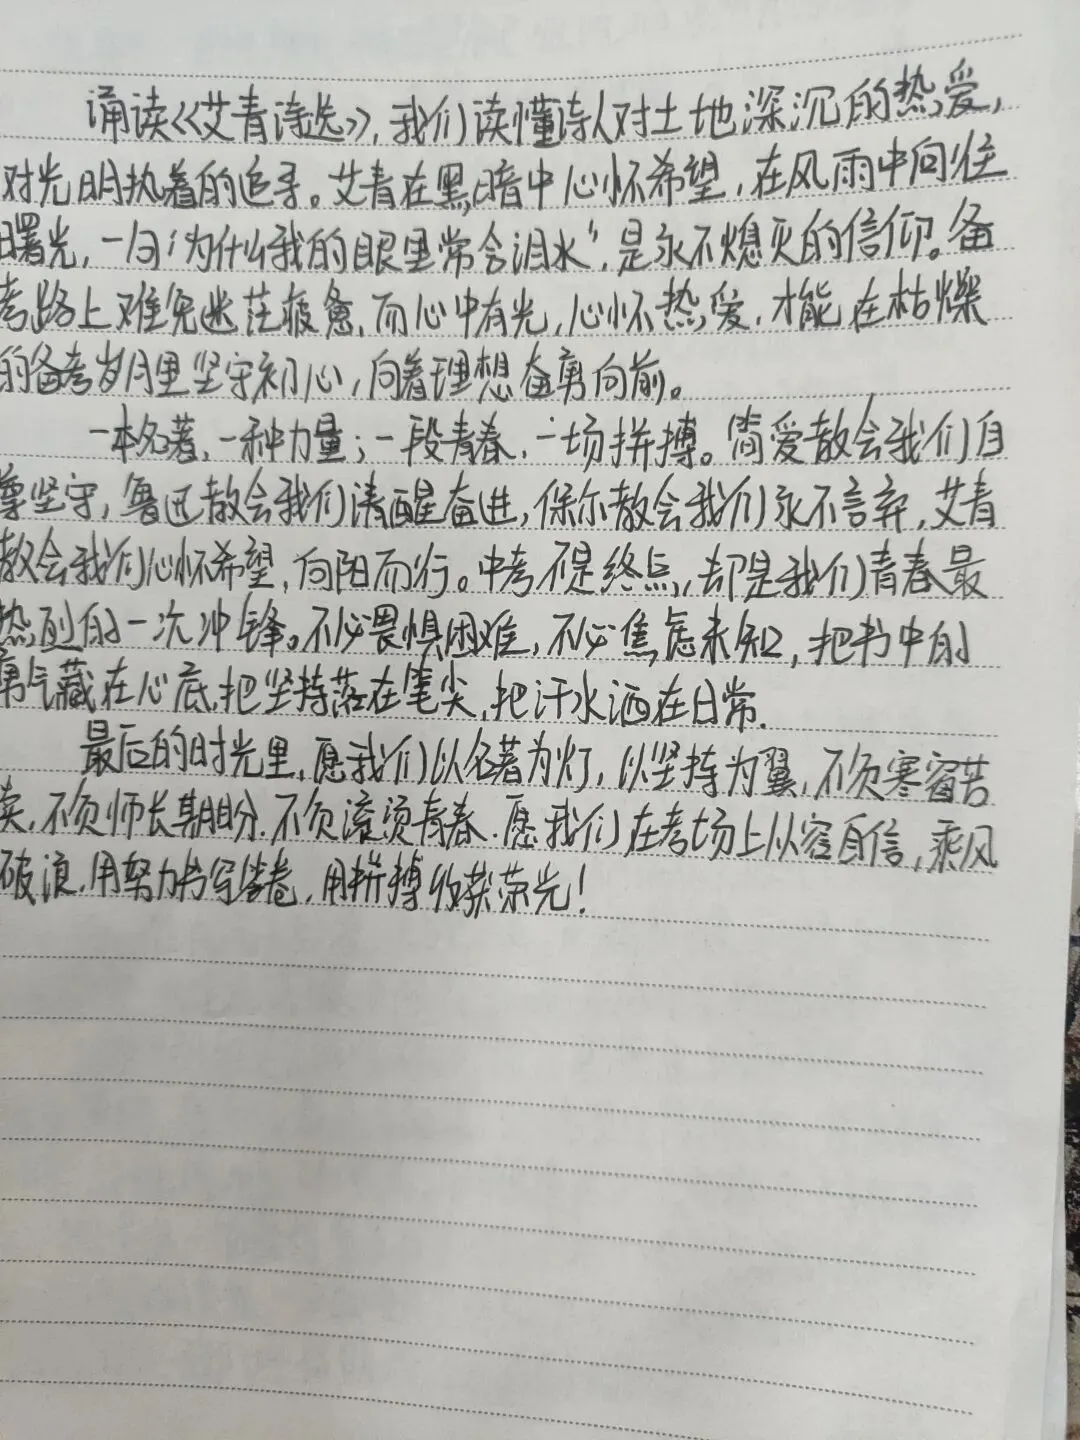 诵读《艾青诗选》,我们读懂诗人对土地深沉的热爱,
对光明执着的追寻。艾青在黑暗中心怀希望,在风雨中向往
曙光,一句“为什么我的眼里常含泪水”,是永不熄灭的信仰。备
考路上难免迷茫疲惫,而心中有光,心怀热爱,才能在枯燥
的备考岁月里坚守初心,向着理想奋勇向前。
一本名著,一种力量;一段青春,一场拼搏。简爱教会我们自
尊坚守,鲁迅教会我们清醒奋进,保尔教会我们永不言弃,艾青
教会我们心怀希望,向阳而行。中考不是终点,却是我们青春最
热烈的一次冲锋。不必畏惧困难,不必焦虑未知,把书中的
勇气藏在心底,把坚持落在笔尖,把汗水洒在日常.
最后的时光里,愿我们以名著为灯,以坚持为翼,不负寒窗苦
读,不负师长期盼.不负滚烫青春.愿我们在考场上从容自信,乘风
破浪.用努力书写答卷,用拼搏收获荣光!